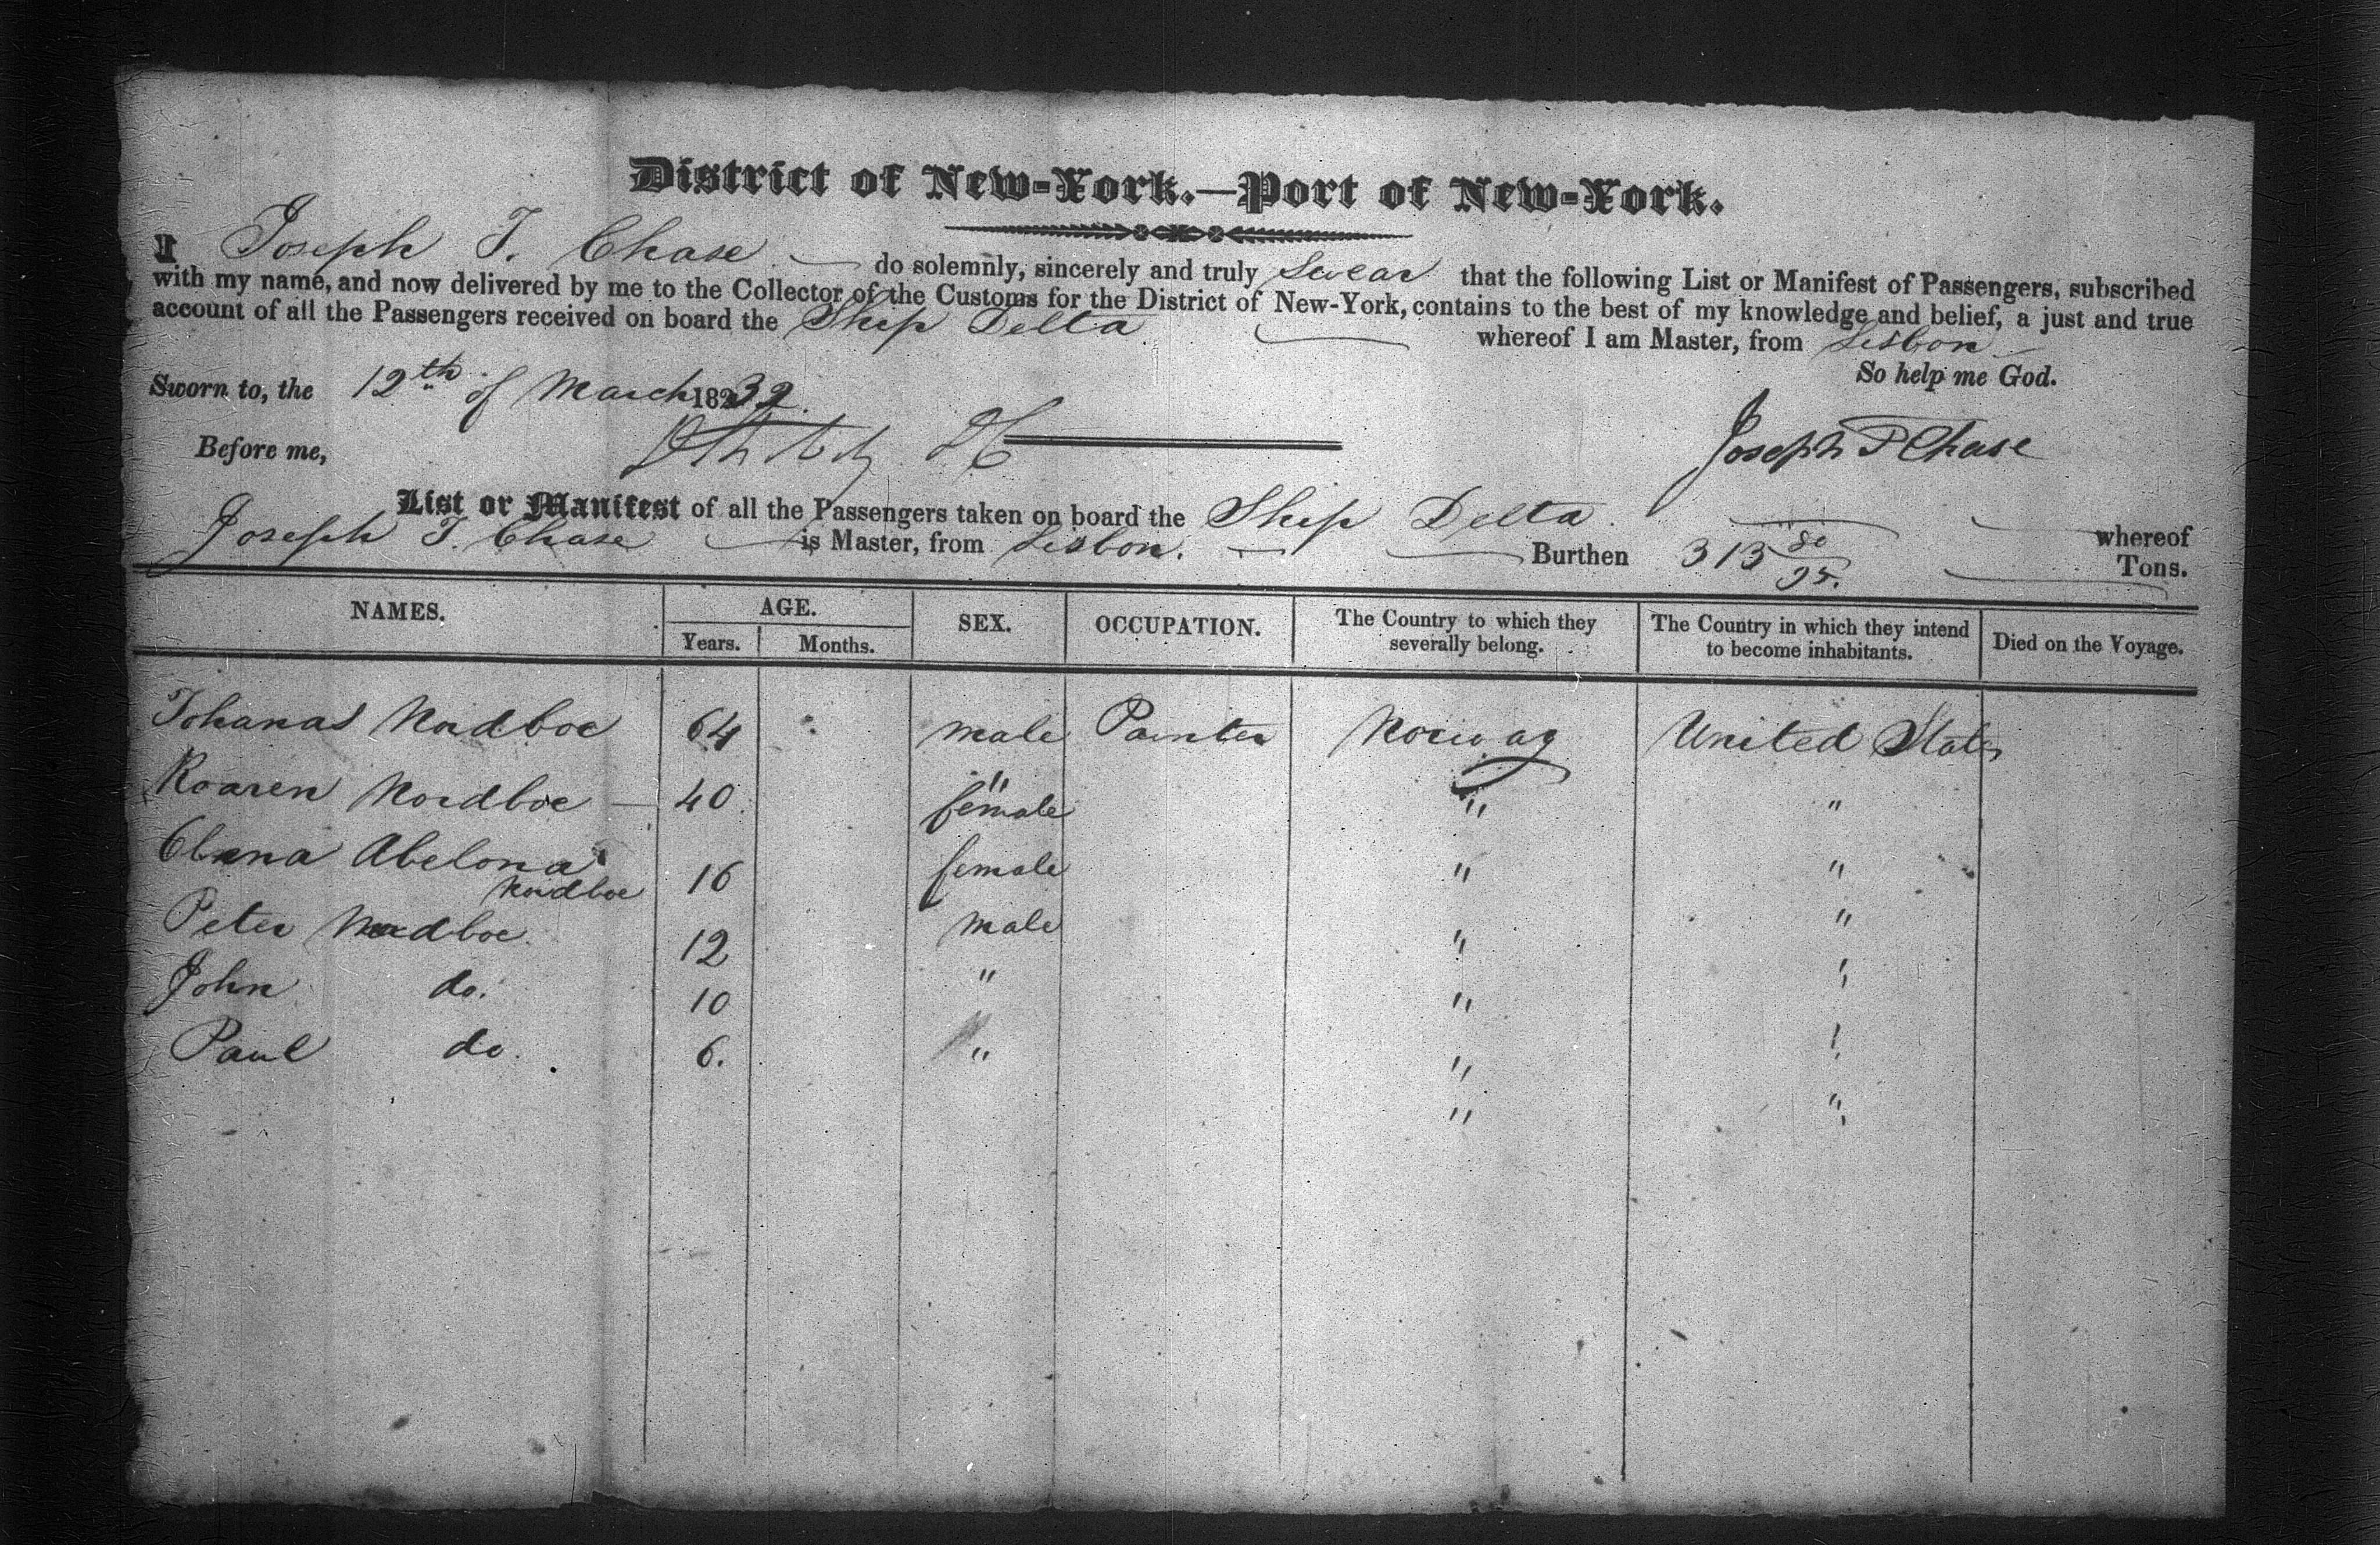 District of New-York.—Port of New-York.
I Joseph T. Chase do solemnly, sincerely and truly Swear that the following List or Manifest of Passengers, subscribed
with my name, and now delivered by me to the Collector of the Customs for the District of New-York, contains to the best of my knowledge and belief, a just and true
account of all the Passengers received on board the Ship Delta whereof I am Master, from Lisbon
So help me God.
Sworn to, the 12th of March 1832.
Before me,
Joseph T Chase
List or Manifest of all the Passengers taken on board the Ship Delta. whereof
Joseph T. Chase is Master, from Lisbon. Burthen 313 80/95. Tons.
NAMES. AGE. Years. Months. SEX. OCCUPATION. The Country to which they severally belong. The Country in which they intend to become inhabitants. Died on the Voyage.
Johanas Nordboe 64 male Painter Norway United States
Koaren Nordboe — 40 " female " "
Abelona Nordboe 16 female " "
Peter Nordboe. 12 male " "
John do. 10 " " "
Paul do. 6. " " "
" "